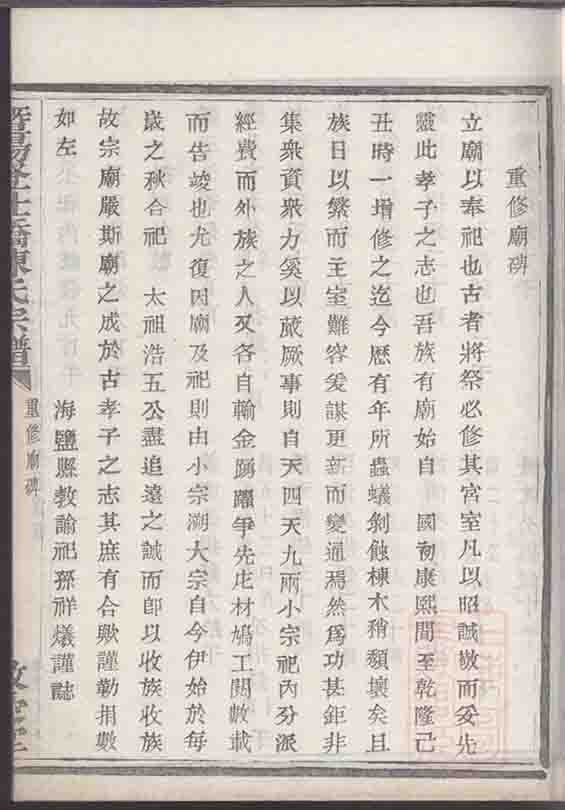 重修廟碑
立廟以奉祀也古者將祭必修其宮室凡以昭誠敬而妥先
靈此孝子之志也吾族有廟始自 國初康熙間至乾隆己
丑時一增修之迄今歷有年所蟲蟻剝蝕棟木稍頽壞矣且
族日以繁而主室難容爰謀更新而變通焉然為功甚鉅非
集衆資衆力奚以蕆厥事則自天四天九兩小宗祀內分派
經費而外族之人又各自輸金踴躍爭先庀材鳩工閱數載
而告竣也尤復因廟及祀則由小宗溯大宗自今伊始於每
歲之秋合祀 太祖浩五公盡追遠之誠而卽以收族收族
故宗廟嚴斯廟之成於古孝子之志其庶有合歟謹勒捐數
如左 海鹽縣教諭祀孫祥燨謹誌
橋陳氏宗譜
重修廟碑